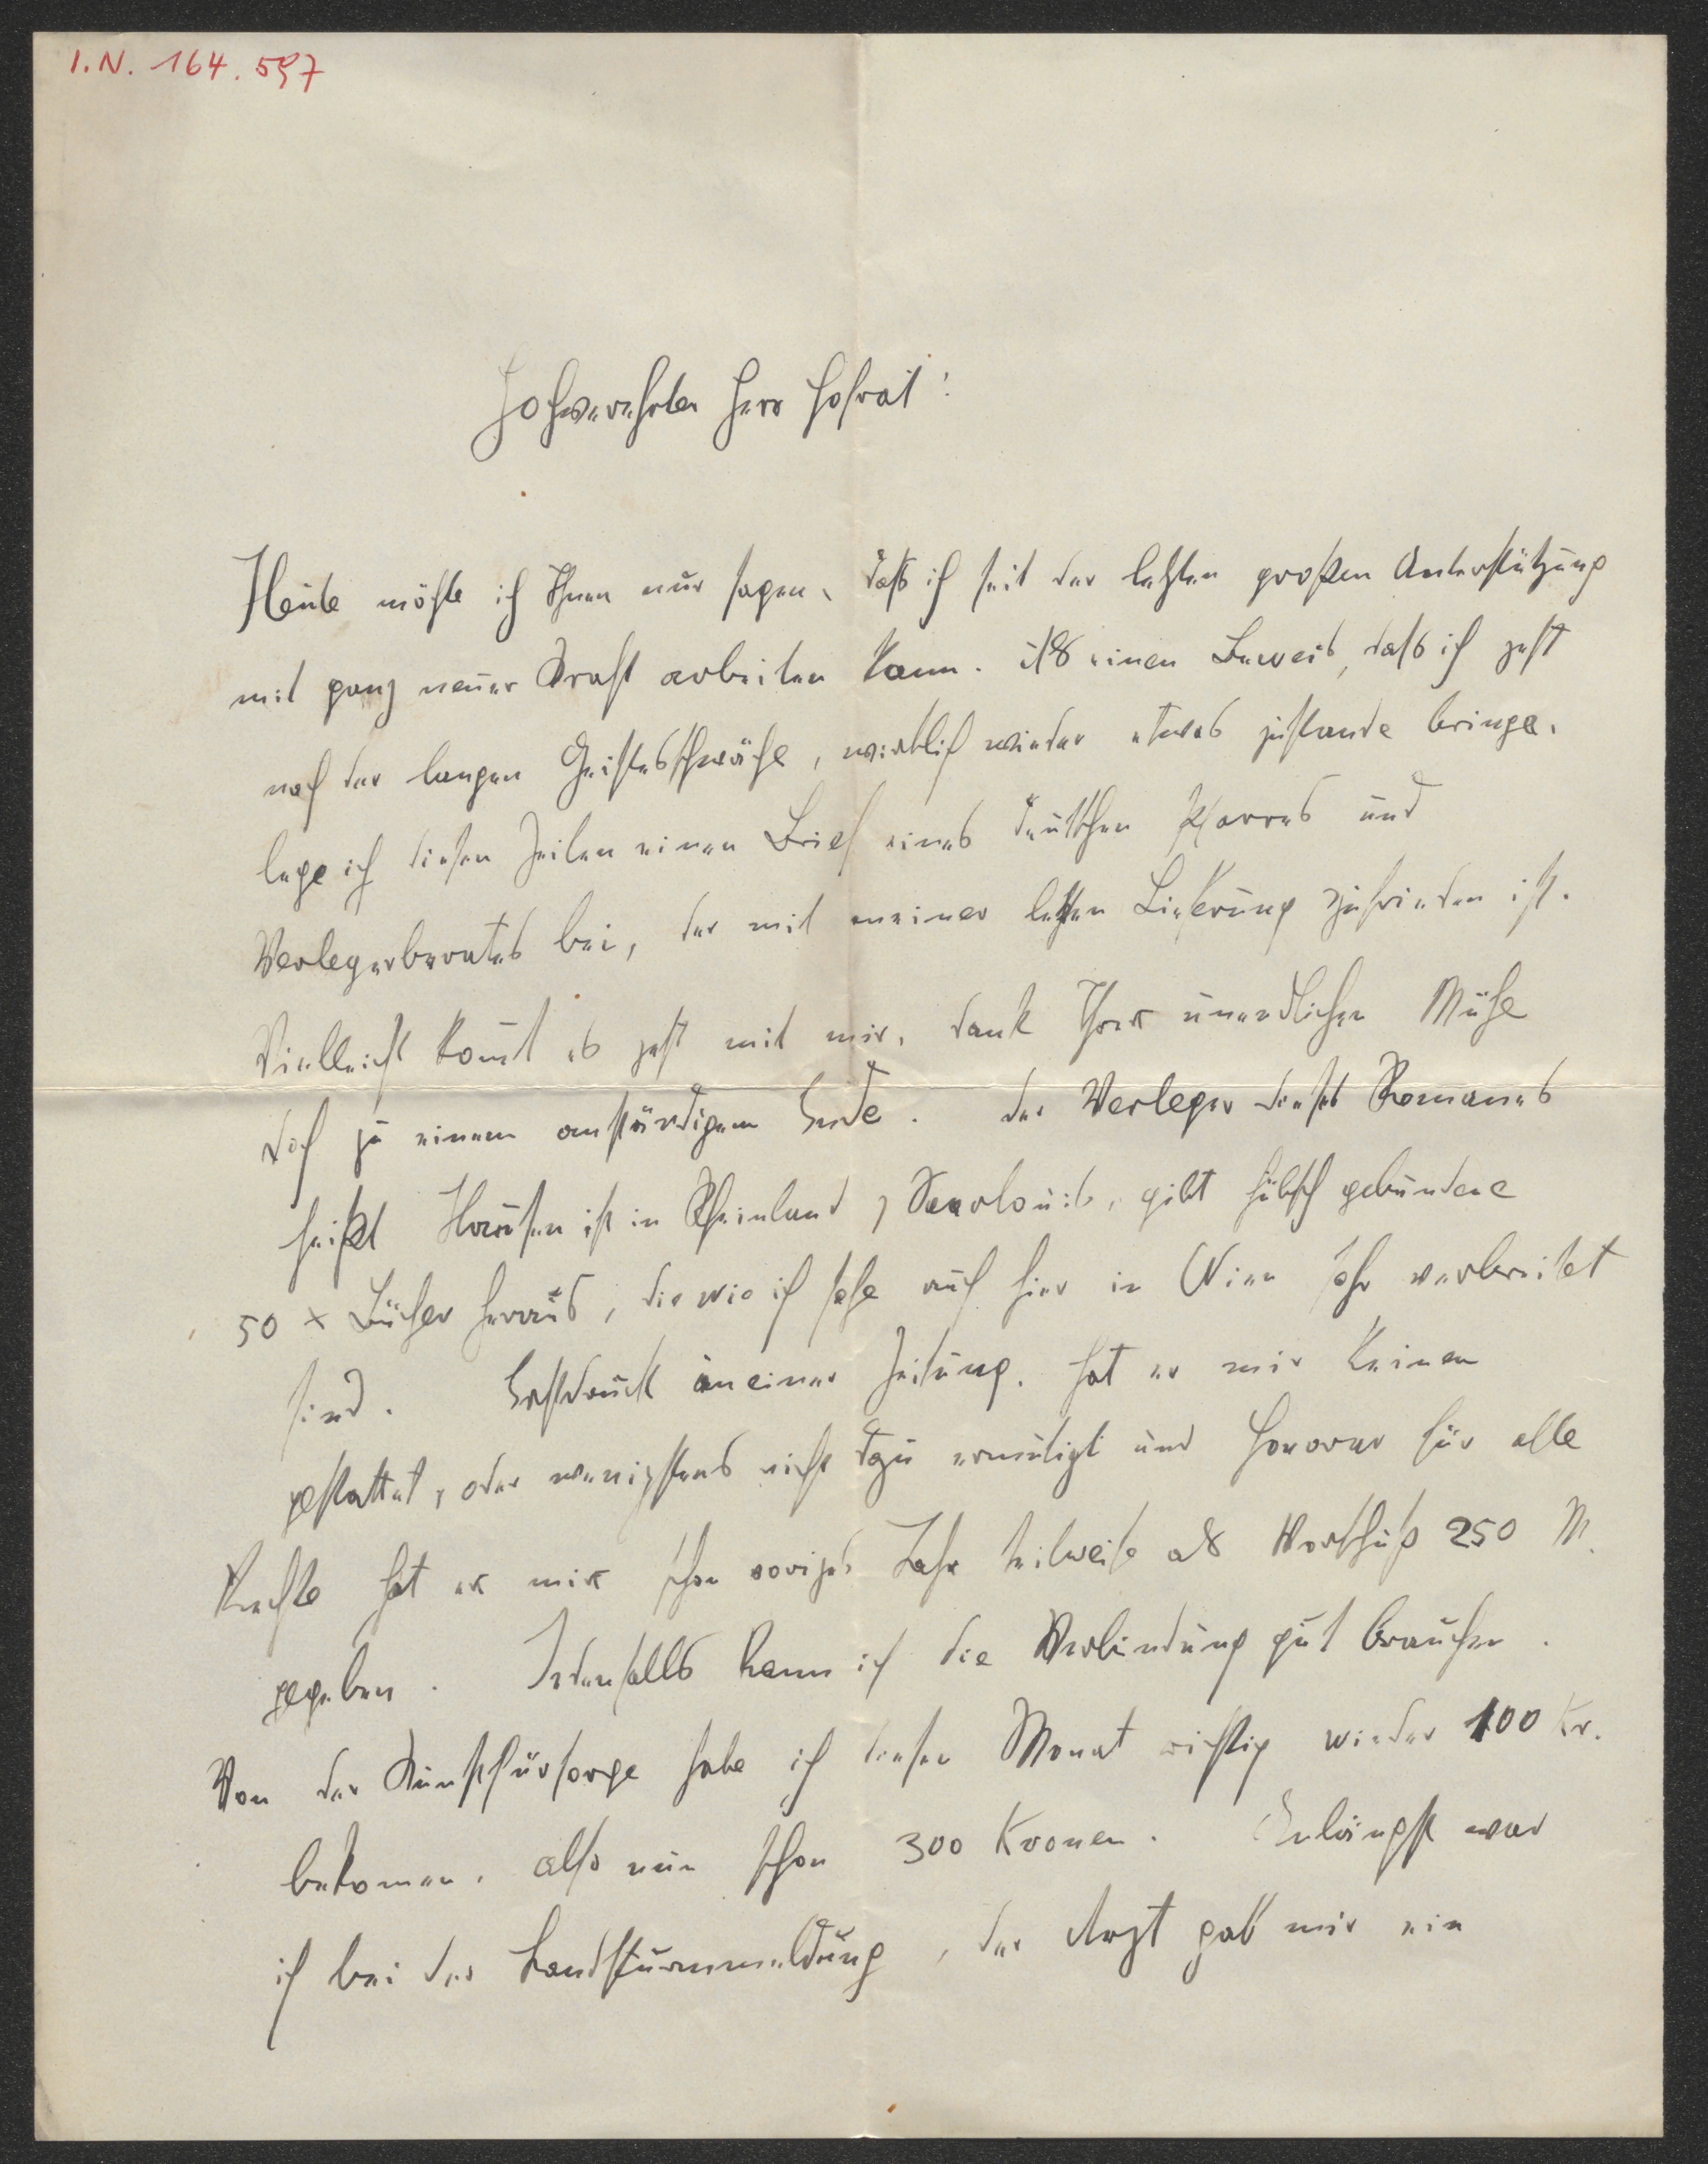 I.N. 164.597
Hochverehrter Herr Hofrat!
Heute möchte ich Ihnen nur sagen, daß ich seit der letzten großen Unterstützung
mit ganz neuer Kraft arbeiten kann. Als einen Beweis, daß ich jetzt
nach der langen Geistesschwäche, wirklich wieder etwas zustande bringe,
lege ich diesen Zeilen einen Brief eines deutschen Pfarrers und
Verlegerberaters bei, der mit meiner letzten Lieferung zufrieden ist.
Vielleicht kom̅t es jetzt mit mir, dank Ihrer unendlichen Mühe
doch zu einem anständigem Ende. Der Verleger dieses Romanes
heißt Hausen ist in Rheinland, Saarlouis, gibt hübsch gebundene
50 x Bücher heraus, die wie ich sehe auch hier in Wien sehr verbreitet
sind. Erstdruck in einer Zeitung, hat er mir keinen
gestattet, oder wenigstens nicht dazu ermutigt und Honorar für alle
Rechte hat er mir schon voriges Jahr teilweise als Vorschuß 250 M.
gegeben. Jedenfalls kann ich die Verbindung gut brauchen.
Von der Kunstfürsorge habe ich diesen Monat richtig wieder 100 Kr.
bekomen, also nun schon 300 Kronen. Unlängst war
ich bei der Landsturmmeldung, der Arzt gab mir ein